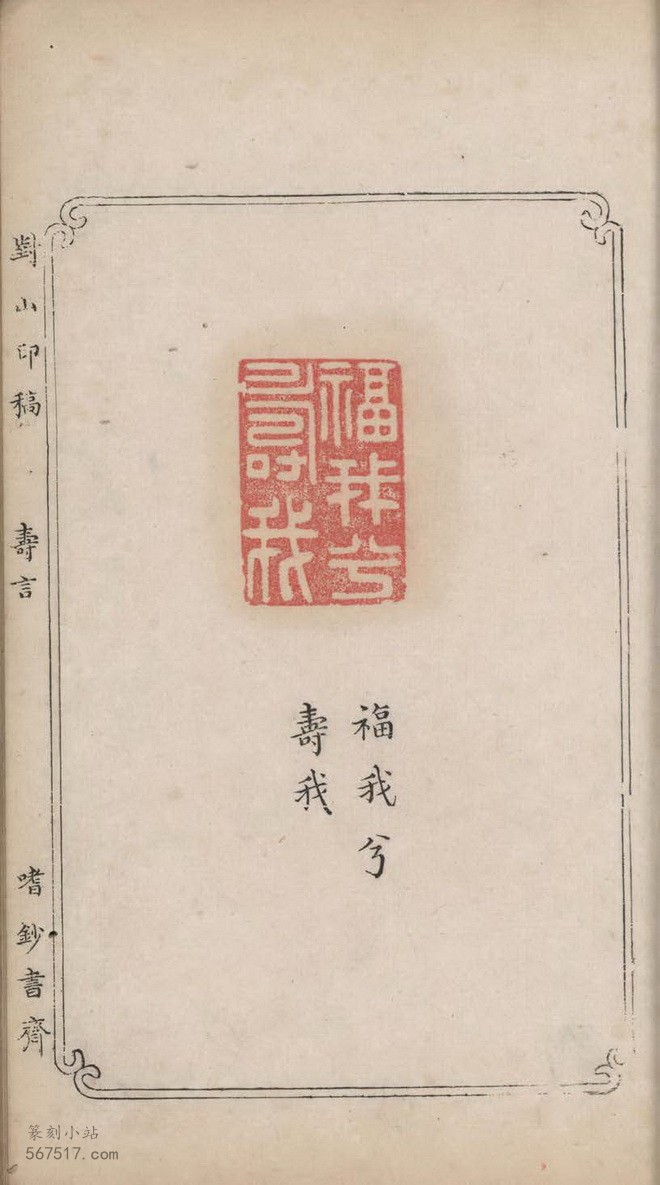 福我兮
壽我
福我兮
壽我
對山印稿
壽言
嗜鈔書齋
篆刻小站
567517.com